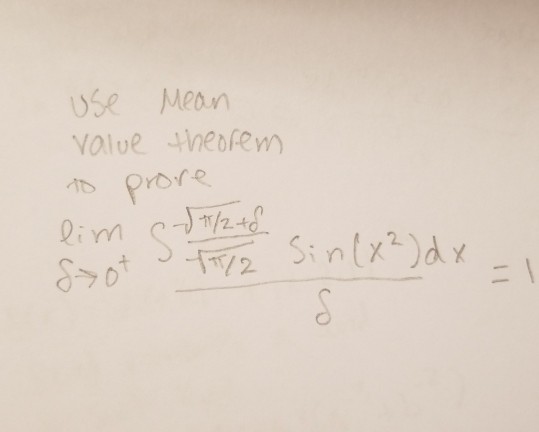 Use Mean
Value theorem
to prove
lim δ→0⁺ ∫_{√π/2}^{√π/2+δ} sin(x²)dx / δ = 1